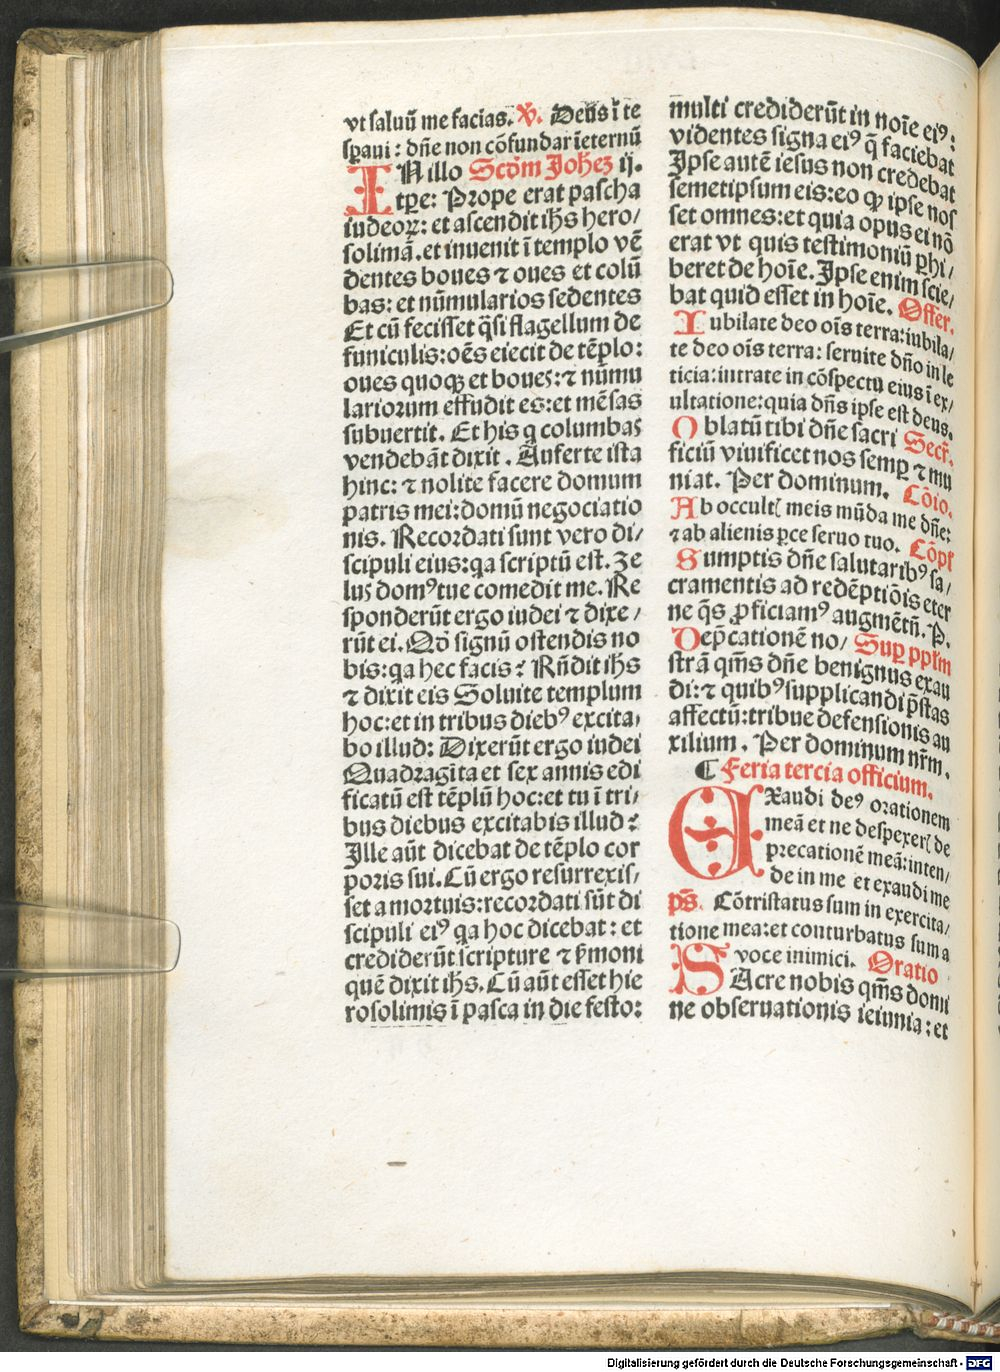 vt saluū me facias. ꝟ. Deus ī te
sꝑaui: dn̄e non cōfundar īeternū
IN illo Scd̄m Joh̄eꝫ ij.
tꝑe: Prope erat pascha
iudeoꝝ: et ascendit ih̄s hero/
solimā. et inuenit ī templo vē
dentes boues ⁊ oues et colū
bas: et nūmularios sedentes
Et cū fecisset q̄si flagellum de
funiculis: oēs eiecit de tēplo:
oues quoqꝫ et boues: ⁊ nūmu
lariorum effudit es: et mēsas
subuertit. Et his q columbas
vendebāt dixit. Auferte ista
hinc: ⁊ nolite facere domum
patris mei: domū negociatio
nis. Recordati sunt vero di/
scipuli eius: qa scriptū est. Ze
lus domꝰ tue comedit me. Re
sponderūt ergo iudei ⁊ dixe/
rūt ei. Qd̄ signū ostendis no
bis: qa hec facis? Rn̄dit ih̄s
⁊ dixit eis Soluite templum
hoc: et in tribus diebꝰ excita/
bo illud: Dixerūt ergo iudei
Quadragīta et sex annis edi
ficatū est tēplū hoc: et tu ī tri/
bus diebus excitabis illud?
Ille aūt dicebat de tēplo cor
poris sui. Cū ergo resurrexis/
set a mortuis: recordati sūt di
scipuli eiꝰ qa hoc dicebat: et
crediderūt scripture ⁊ v̄moni
quē dixit ih̄s. Cū aūt esset hie
rosolimis ī pasca in die festo:
multi crediderūt in noīe eiꝰ:
videntes signa eiꝰ q̄ faciebat
Ipse autē iesus non credebat
semetipsum eis: eo ꝙ ipse nos
set omnes: et quia opus ei nō
erat vt quis testimoniū ꝑhi/
beret de hoīe. Ipse enim scie/
bat quid esset in hoīe. Offer.
Iubilate deo oīs terra: iubila/
te deo oīs terra: seruite dn̄o in le
ticia: intrate in cōspectu eius ī ex/
ultatione: quia dn̄s ipse est deus.
Oblatū tibi dn̄e sacri Secr̄.
ficiū viuificet nos semꝑ ⁊ mu
niat. Per dominum. Cōio.
Ab occultꝭ meis mūda me dn̄e:
⁊ ab alienis ꝑce seruo tuo. Cōpl̄
Sumptis dn̄e salutaribꝰ sa/
cramentis ad redēptiōis eter
ne q̄s ꝓficiamꝰ augmētū. P.
Dep̄cationē no/ Suꝑ ppl̄m
strā qm̄s dn̄e benignus exau
di: ⁊ quibꝰ supplicandi p̄stas
affectū: tribue defensionis au
xilium. Per dominum nr̄m.
¶ Feria tercia officium.
EXaudi deꝰ orationem
meā et ne despexerꝭ de
precationē meā: inten/
de in me et exaudi me
ps̄. Cōtristatus sum in exercita/
tione mea: et conturbatus sum a
voce inimici. Oratio
SAcre nobis qm̄s domi
ne obseruationis ieiunia: et
Digitalisierung gefördert durch die Deutsche Forschungsgemeinschaft - DFG